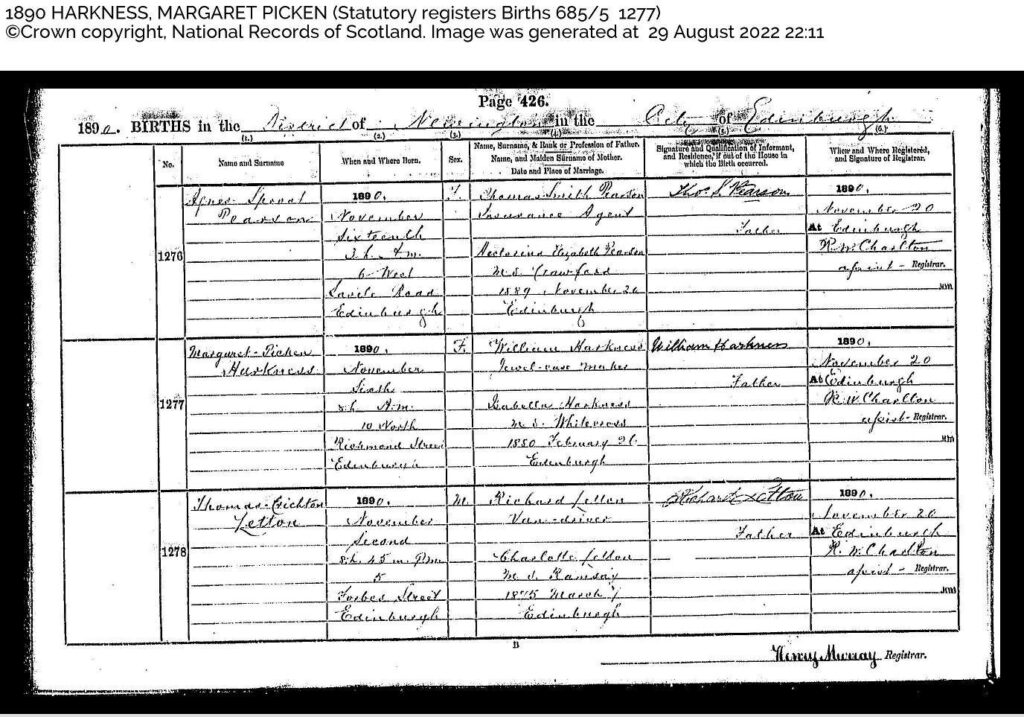 1890 HARKNESS, MARGARET PICKEN (Statutory registers Births 685/5 1277)
©Crown copyright, National Records of Scotland. Image was generated at 29 August 2022 22:11
Page 426.
1890. BIRTHS in the District of Newington in the City of Edinburgh
(1.) (2.) (3.) (4.) (5.) (6.)
No.
Name and Surname
When and Where Born.
Sex.
Name, Surname, & Rank or Profession of Father.
Name, and Maiden Surname of Mother.
Date and Place of Marriage.
Signature and Qualification of Informant,
and Residence, if out of the House in
which the Birth occurred.
When and Where Registered,
and Signature of Registrar.
1276
Agnes Sproat
Pearson
1890.
November
Sixteenth
3 h. A.m.
6 West
Savile Road
Edinburgh
F.
Thomas Smith Pearson
Insurance Agent
Elizabeth Pearson
M.S. Crawford
1889 November 26
Edinburgh
Thos. S. Pearson
Father
1890.
November 20
At Edinburgh
R. W. Charlton
Registrar.
1277
Margaret Picken
Harkness
1890.
November
Sixth
8 h. A.m.
10 North
Richmond Street
Edinburgh
F.
William Harkness
Jewel-case maker
Isabella Harkness
M.S. Whitecross
1880 February 26
Edinburgh
William Harkness
Father
1890.
November 20
At Edinburgh
R. W. Charlton
Registrar.
1278
Thomas Crichton
1890.
November
Second
8 h. 45 m. P.m.
5
Forbes Street
Edinburgh
M.
Richard
Van-driver
Charlotte
M.S. Ramsay
1875 March
Edinburgh
Richard
Father
1890.
November 20
At Edinburgh
R. W. Charlton
Registrar.
B
Henry Murray Registrar.